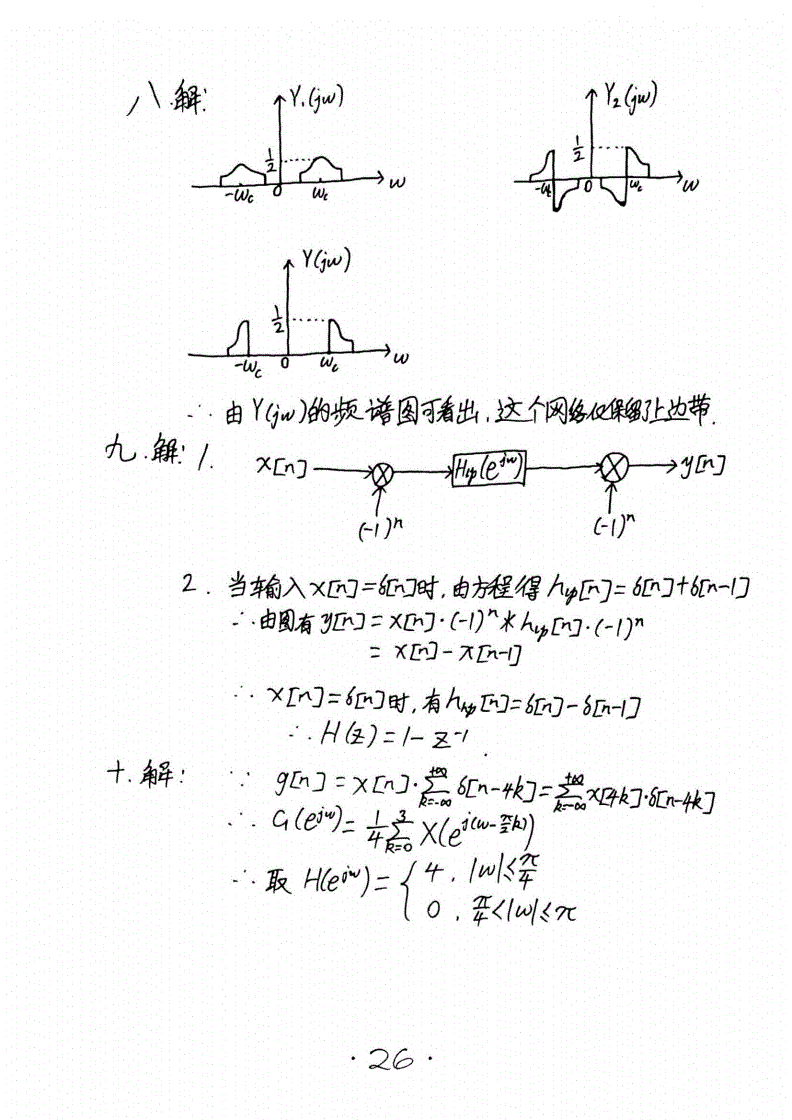 八.解:
Y₁(jw)
1/2
-wc 0 wc w
Y₂(jw)
1/2
-wc 0 wc w
Y(jw)
1/2
-wc 0 wc w
∴ 由Y(jw)的频谱图可看出,这个网络仅保留了上边带.
九.解: 1. x[n] ⊗ Hlp(e^jw) ⊗ y[n]
(-1)ⁿ (-1)ⁿ
2. 当输入x[n]=δ[n]时,由方程得 hlp[n]=δ[n]+δ[n-1]
∴由图有 y[n]=x[n]·(-1)ⁿ*hlp[n]·(-1)ⁿ
= x[n]-x[n-1]
∵ x[n]=δ[n]时,有hhp[n]=δ[n]-δ[n-1]
∴ H(z)=1-z⁻¹
十.解: ∵ g[n]=x[n]·∑_{k=-∞}^{+∞} δ[n-4k]=∑_{k=-∞}^{+∞} x[4k]·δ[n-4k]
∴ G(e^jw)=1/4 ∑_{k=0}^{3} X(e^{j(w-π/2 k)})
∴ 取 H(e^jw)={ 4, |w|≤π/4
0, π/4<|w|≤π
·26·